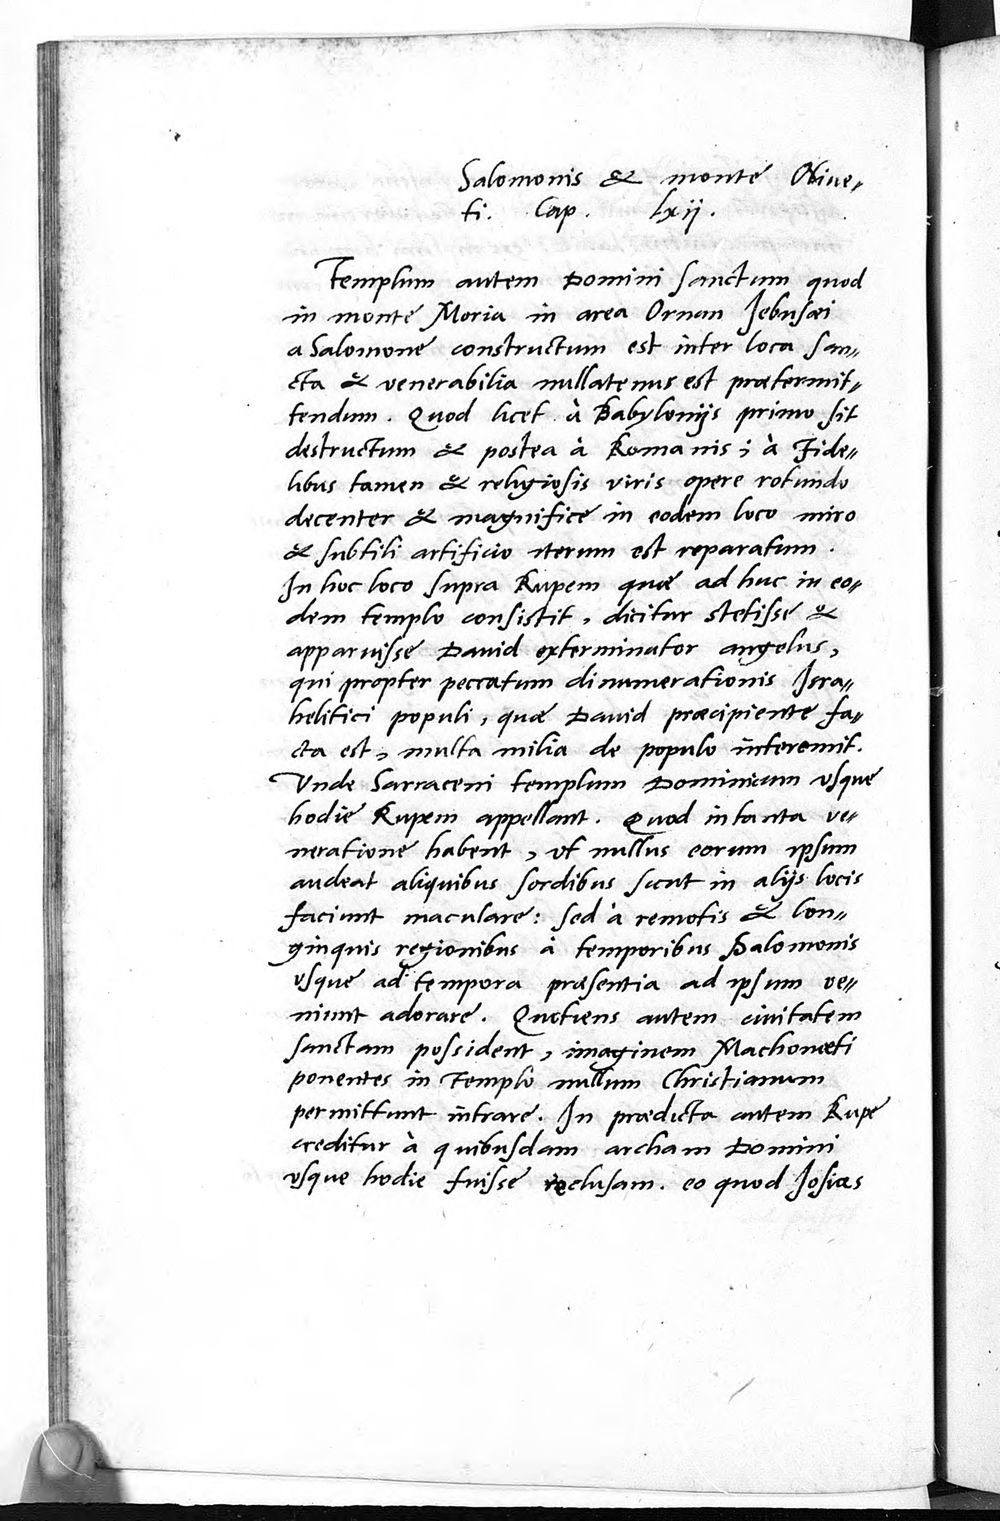 Salomonis & monte Oliue=
ti. Cap. lxij.
Templum autem Domini sanctum quod
in monte Moria in area Ornan Jebusæi
a Salomone constructum est inter loca san=
cta & venerabilia nullatenus est prætermit=
tendum. Quod licet à Babylonijs primo sit
destructum & postea à Romanis; à Fide=
libus tamen & religiosis viris opere rotundo
decenter & magnifice in eodem loco miro
& subtili artificio iterum est reparatum.
In hoc loco supra Rupem quæ ad huc in eo=
dem templo consistit, dicitur stetisse &
apparuisse Dauid exterminator angelus,
qui propter peccatum dinumerationis Isra=
helitici populi, quæ Dauid præcipiente fa=
cta est, multa milia de populo interemit.
Vnde Sarraceni templum Dominicum vsque
hodie Rupem appellant. Quod in tanta ve=
neratione habent, vt nullus eorum ipsum
audeat aliquibus sordibus sicut in alijs locis
faciunt maculare: sed à remotis & lon=
ginquis regionibus à temporibus Salomonis
vsque ad tempora præsentia ad ipsum ve=
niunt adorare. Quotiens autem ciuitatem
sanctam possident, imaginem Machometi
ponentes in Templo nullum Christianum
permittunt intrare. In prædicta autem Rupe
creditur à quibusdam archam Domini
vsque hodie fuisse reclusam. eo quod Josias